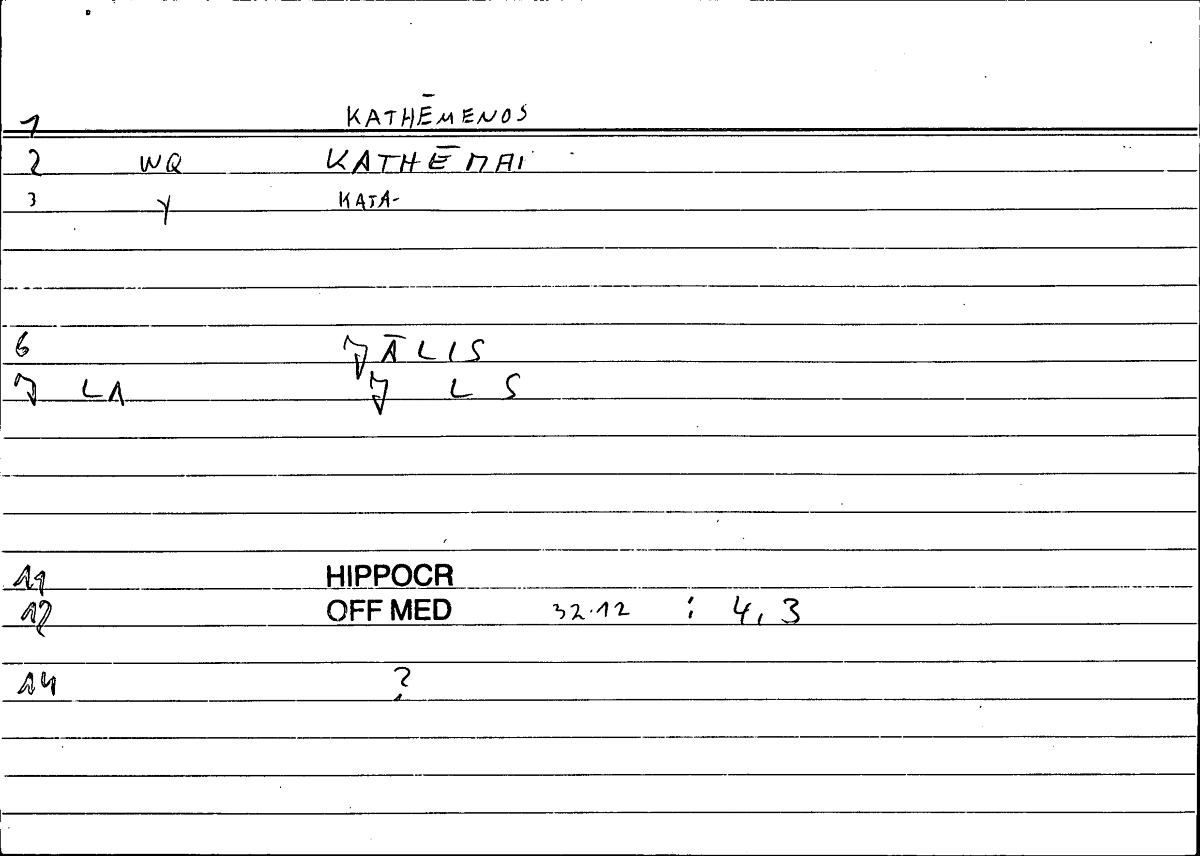 1 KATHĒMENOS
2 WQ KATHĒMAI
3 Y KATA-
6 ǦĀLIS
7 LA Ǧ L S
11 HIPPOCR
12 OFF MED 32.12 : 4,3
14 ?